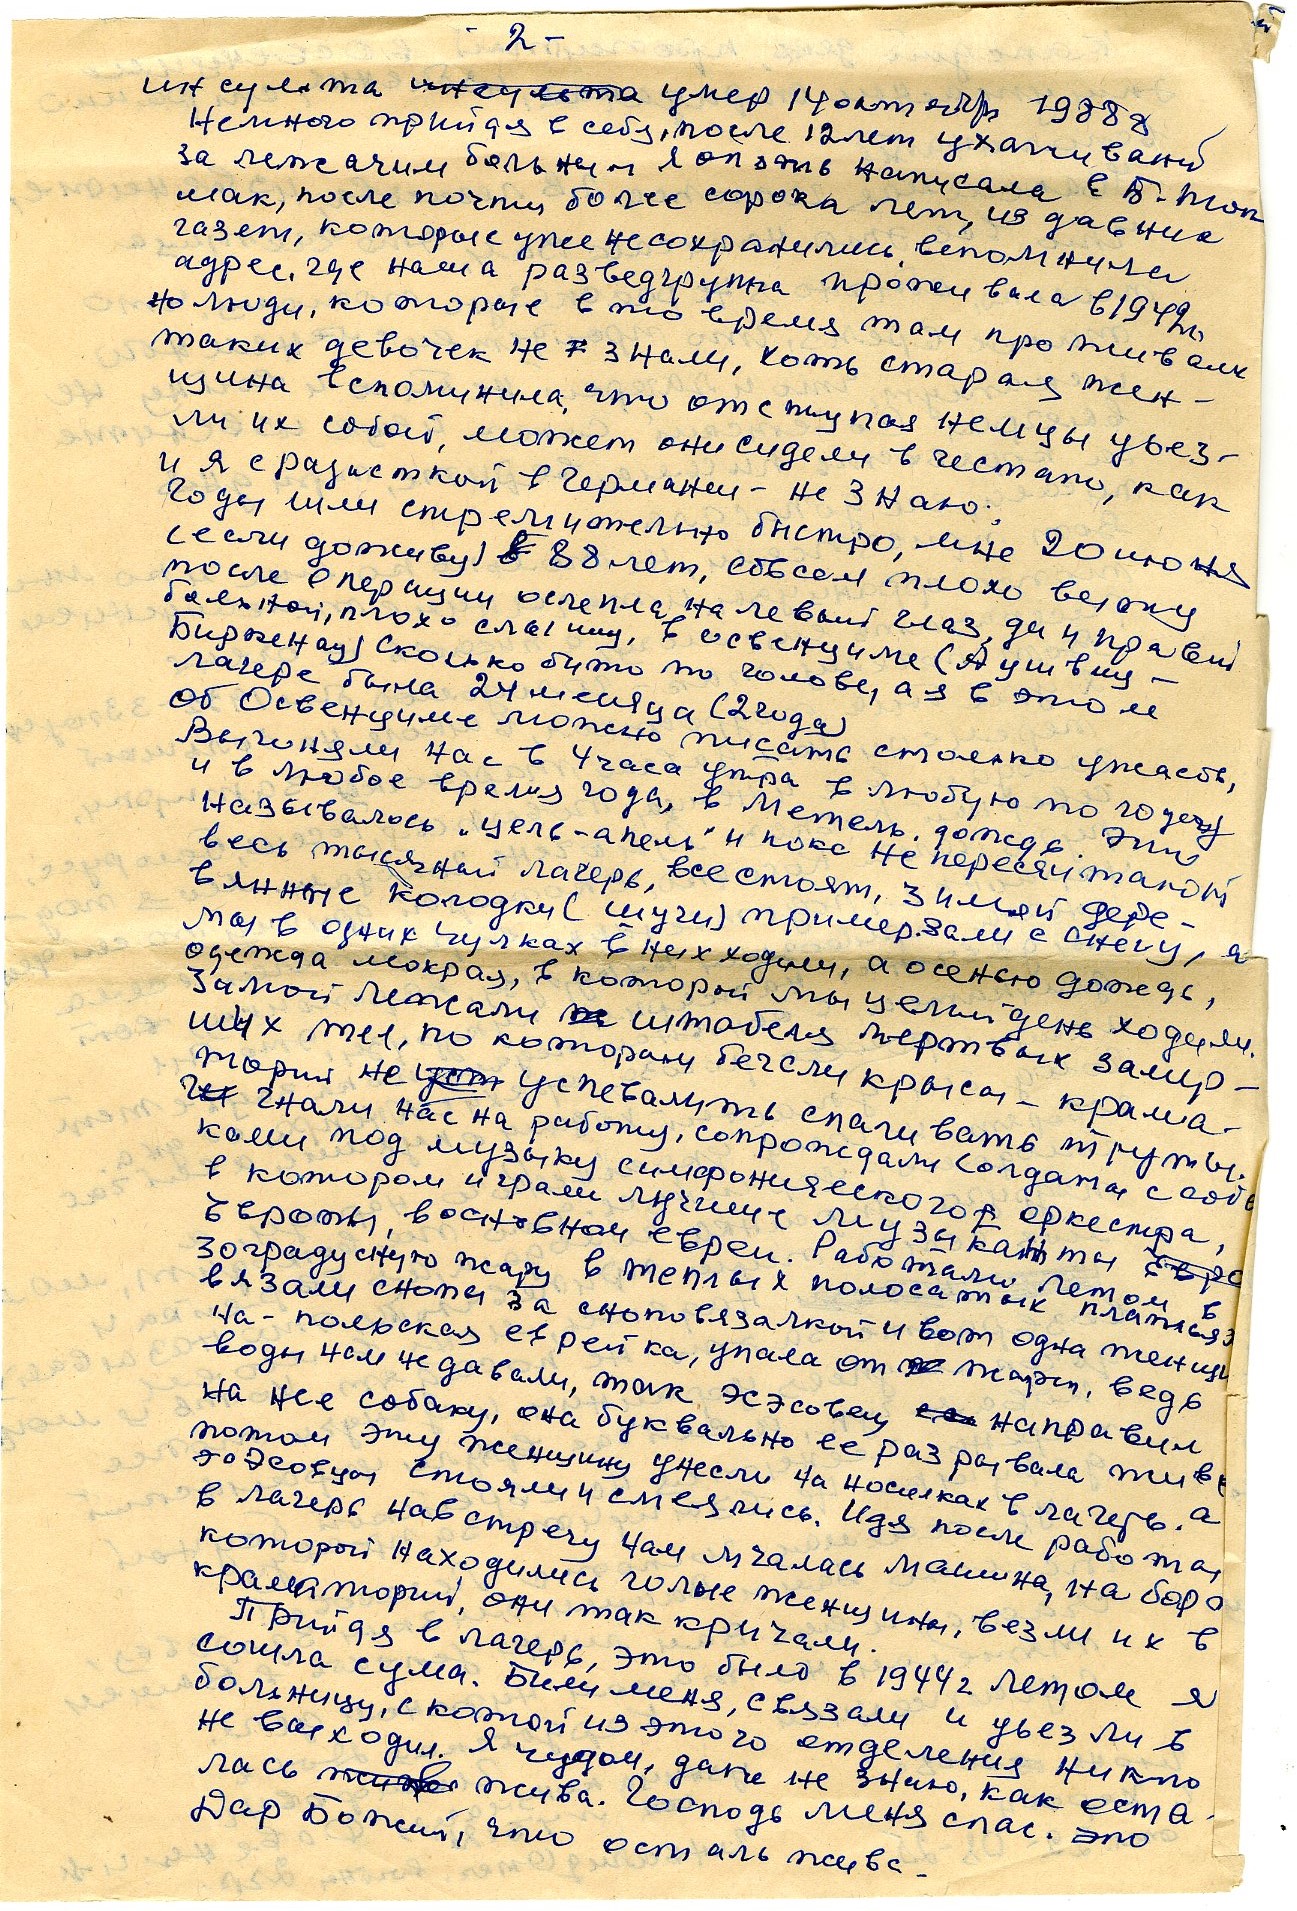 - 2 -
инсульта инсульта умер 14 октября 1988
Немного прийдя в себя, после 12 лет ухаживаний
за лежачим больным я опять написала в Б. Ток
мак, после почти более сорока лет, из давних
газет, которые уже не сохранились, вспомнила
адрес, где наша разведгруппа проживала в 1942г.
но люди, которые в то время там проживали
таких девочек не знали, хоть старая жен-
щина вспомнила, что отступая немцы увез-
ли их собой, может они сидели в гестапо, как
и я с радисткой в Германии - не знаю.
Годы шли стремительно быстро, мне 20 июня
(если доживу) 88 лет, совсем плохо вижу
после операции ослепла на левый глаз, да и правый
больной, плохо слышу, в Освенциме (Аушвиц-
Биркенау) сколько бито по голове, а я в этом
лагере была 24 месяца (2 года)
Об Освенциме можно писать столько ужасов,
Выгоняли нас в 4 часа утра в любую погоду
и в любое время года, в метель, дождь. Это
называлось "цель-апель" и пока не пересчитают
весь тысячный лагерь, все стоят, зимой дере-
вянные колодки (шуги) примерзали с снегу, а
мы в одних чулках в них ходили, а осенью дождь,
одежда мокрая, в которой мы целый день ходили.
Зимой лежали штабеля мертвых замер-
ших тел, по которым бегали крысы - крема-
торий не уст успевалить спаливать трупы.
Гнали нас на работу, сопрождали солдаты с соба
ками под музыку симфонического оркестра,
в котором играли лучшие музыканты Евро
Европы, восновном евреи. Работали летом в
30 градусную жару в теплых полосатых платьях
вязали снопы за сноповязалкой и вот одна женщи
на - польская еврейка, упала от жары, ведь
воды нам не давали, так эсэсовец направил
на нее собаку, она буквально ее разрывала живь
потом эту женщину унесли на носилках в лагерь. а
эсэсовцы стояли и смеялись. Идя после работы
в лагерь навстречу нам мчалась машина, на боро
которой находились голые женщины, везли их в
крематорий, они так кричали.
Прийдя в лагерь, это было в 1944г летом я
сошла сума. Били меня, связали и увезли в
больницу, с которой из этого отделения никто
не выходил. Я чудом, даже не знаю, как оста-
лась жива. Господь меня спас. Это
Дар Божий, что осталь жива.